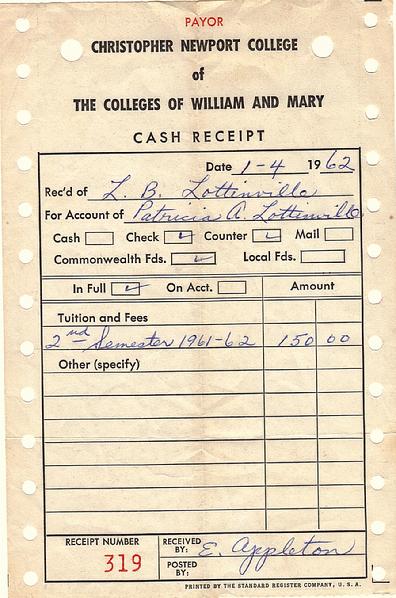 PAYOR
CHRISTOPHER NEWPORT COLLEGE
of
THE COLLEGES OF WILLIAM AND MARY
CASH RECEIPT
Date 1-4 1962
Rec'd of L. B. Lottinville
For Account of Patricia A. Lottinville
Cash Check Counter Mail
Commonwealth Fds. Local Fds.
In Full On Acct. Amount
Tuition and Fees
2nd Semester 1961-62 150 00
Other (specify)
RECEIPT NUMBER
319
RECEIVED BY: E. Appleton
POSTED BY:
PRINTED BY THE STANDARD REGISTER COMPANY, U. S. A.